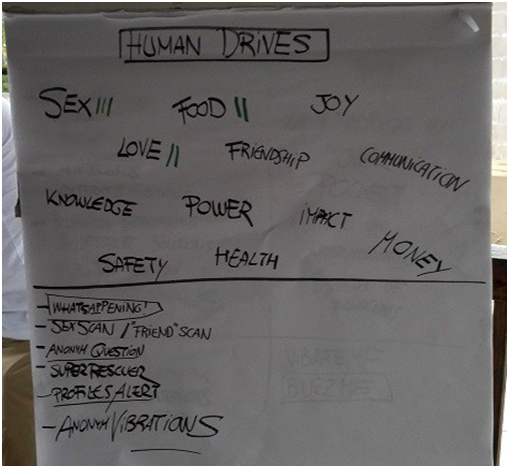 HUMAN DRIVES
SEX ||| FOOD || JOY
LOVE || FRIENDSHIP COMMUNICATION
KNOWLEDGE POWER IMPACT
MONEY
SAFETY HEALTH
- WHATSAPPENING!
- SEXSCAN / "FRIEND" SCAN
- ANONYM QUESTION
- SUPER RESCUER
- PROFILES ALERT
- ANONYM VIBRATIONS